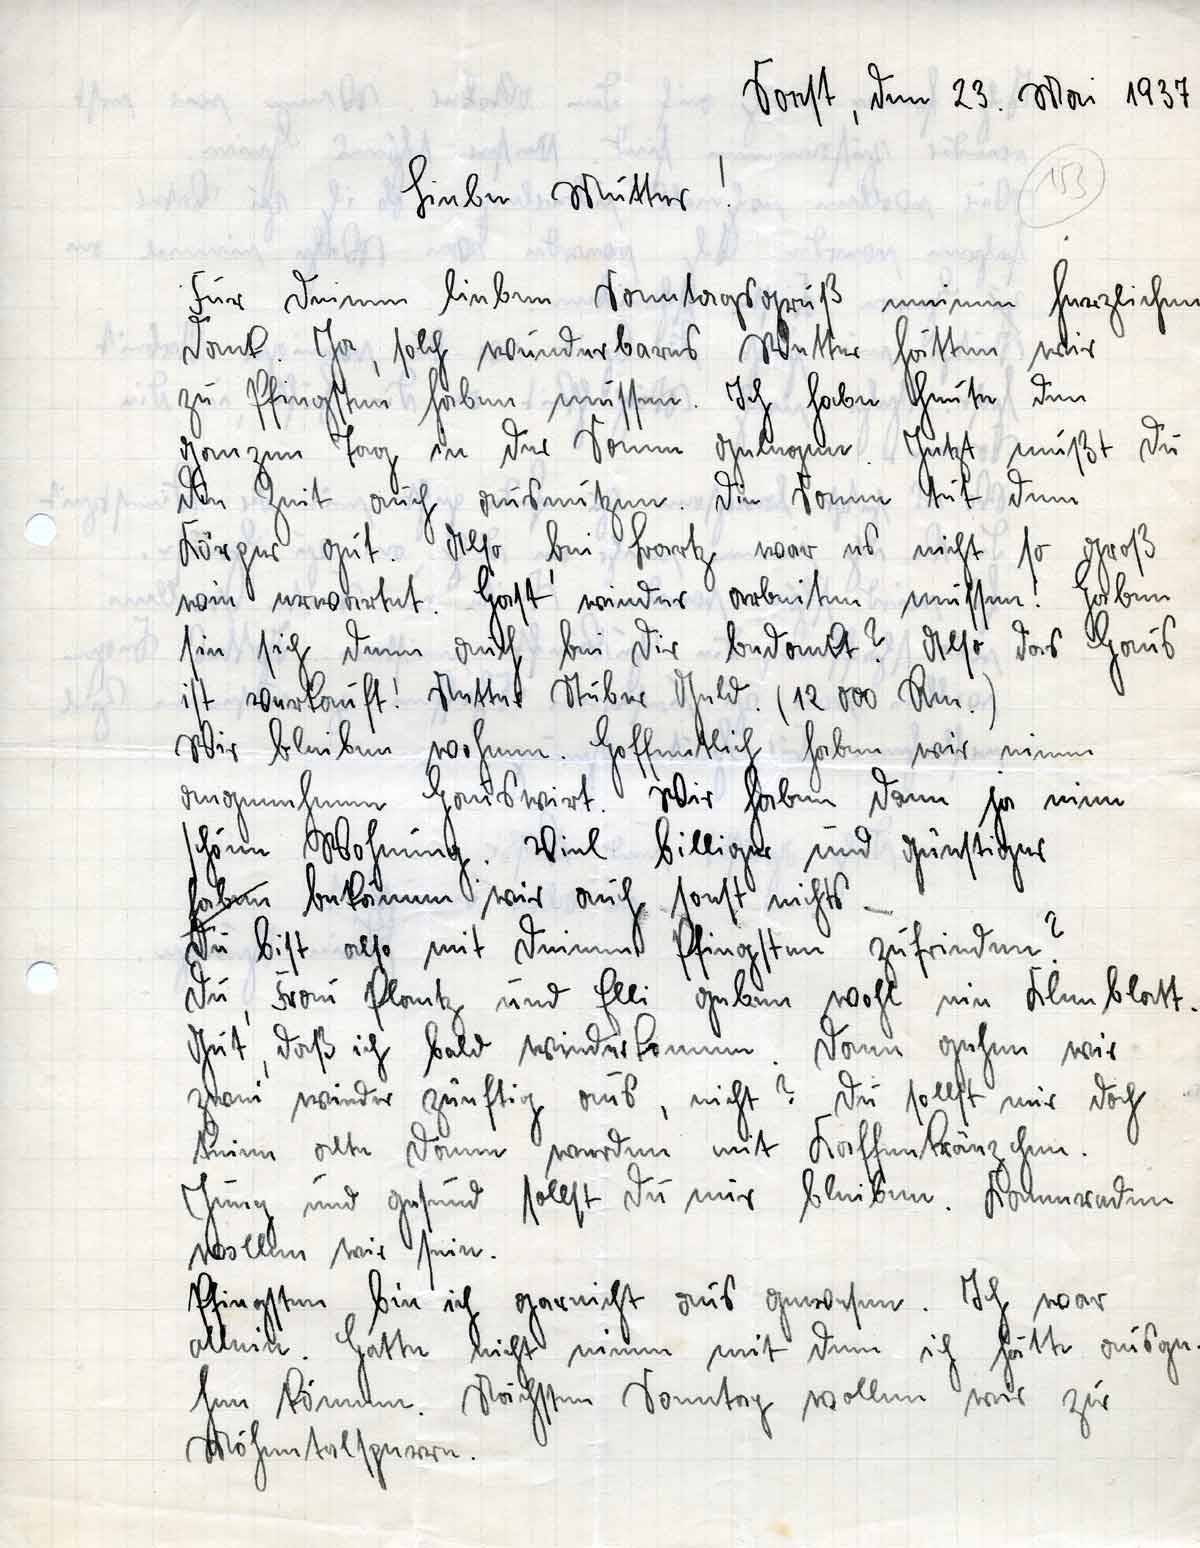 Soest, den 23. Mai 1937
153
Liebe Mutter!
Für Deinen lieben Sonntagsgruß meinen herzlichen
Dank. Ja, solch wunderbares Wetter hätten wir
zu Pfingsten haben müssen. Ich habe heute den
ganzen Tag in der Sonne gelegen. Jetzt mußt Du
die Zeit auch ausnutzen. Die Sonne tut dem
Körper gut. Also bei Hartz war es nicht so groß
wie erwartet. Hast wieder arbeiten müssen! Haben
sie sich denn auch bei Dir bedankt? Also das Haus
ist verkauft! Netter Stüber Geld. (12 000 Rm.)
Wir bleiben wohnen. Hoffentlich haben wir einen
angenehmen Hauswirt. Wir haben dann ja eine
schöne Wohnung. Viel billiger und günstiger
haben bekämen wir auch sonst nichts
Du bist also mit Deinem Pfingsten zufrieden?
Du, Frau Plantz und Elli geben wohl ein Kleeblatt.
Gut, daß ich bald wiederkomme. Dann gehen wir
zwei wieder zünftig aus, nicht? Du sollst mir doch
keine alte Dame werden mit Kaffeekränzchen.
Jung und gesund sollst Du mir bleiben. Kameraden
wollen wir sein.
Pfingsten bin ich garnicht aus gewesen. Ich war
allein. Hatte nicht einen mit dem ich hätte ausge-
hen können. Nächsten Sonntag wollen wir zur
Möhnetalsperre.